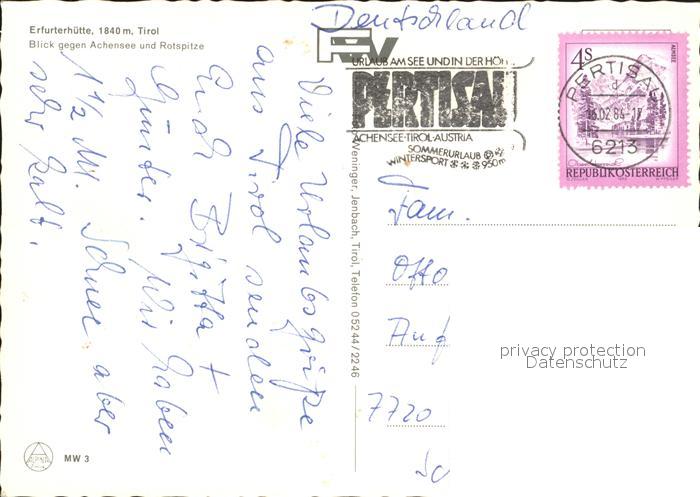 Erfurterhütte, 1840 m, Tirol
Blick gegen Achensee und Rotspitze
Viele Urlaubsgrüße
aus Tirol senden
Euch Brigitta +
Günter. Wir haben
1 1/2 M. Schnee aber
sehr kalt.
MW 3
Weninger, Jenbach, Tirol, Telefon 05244/2246
Deutschland
URLAUB AM SEE UND IN DER HÖH
PERTISAU
ACHENSEE-TIROL-AUSTRIA
SOMMERURLAUB
WINTERSPORT 950m
4S
ALMSEE
REPUBLIK ÖSTERREICH
PERTISAU
16.02.84-17
6213
Fam.
Otto
Auf
7720
privacy protection
Datenschutz